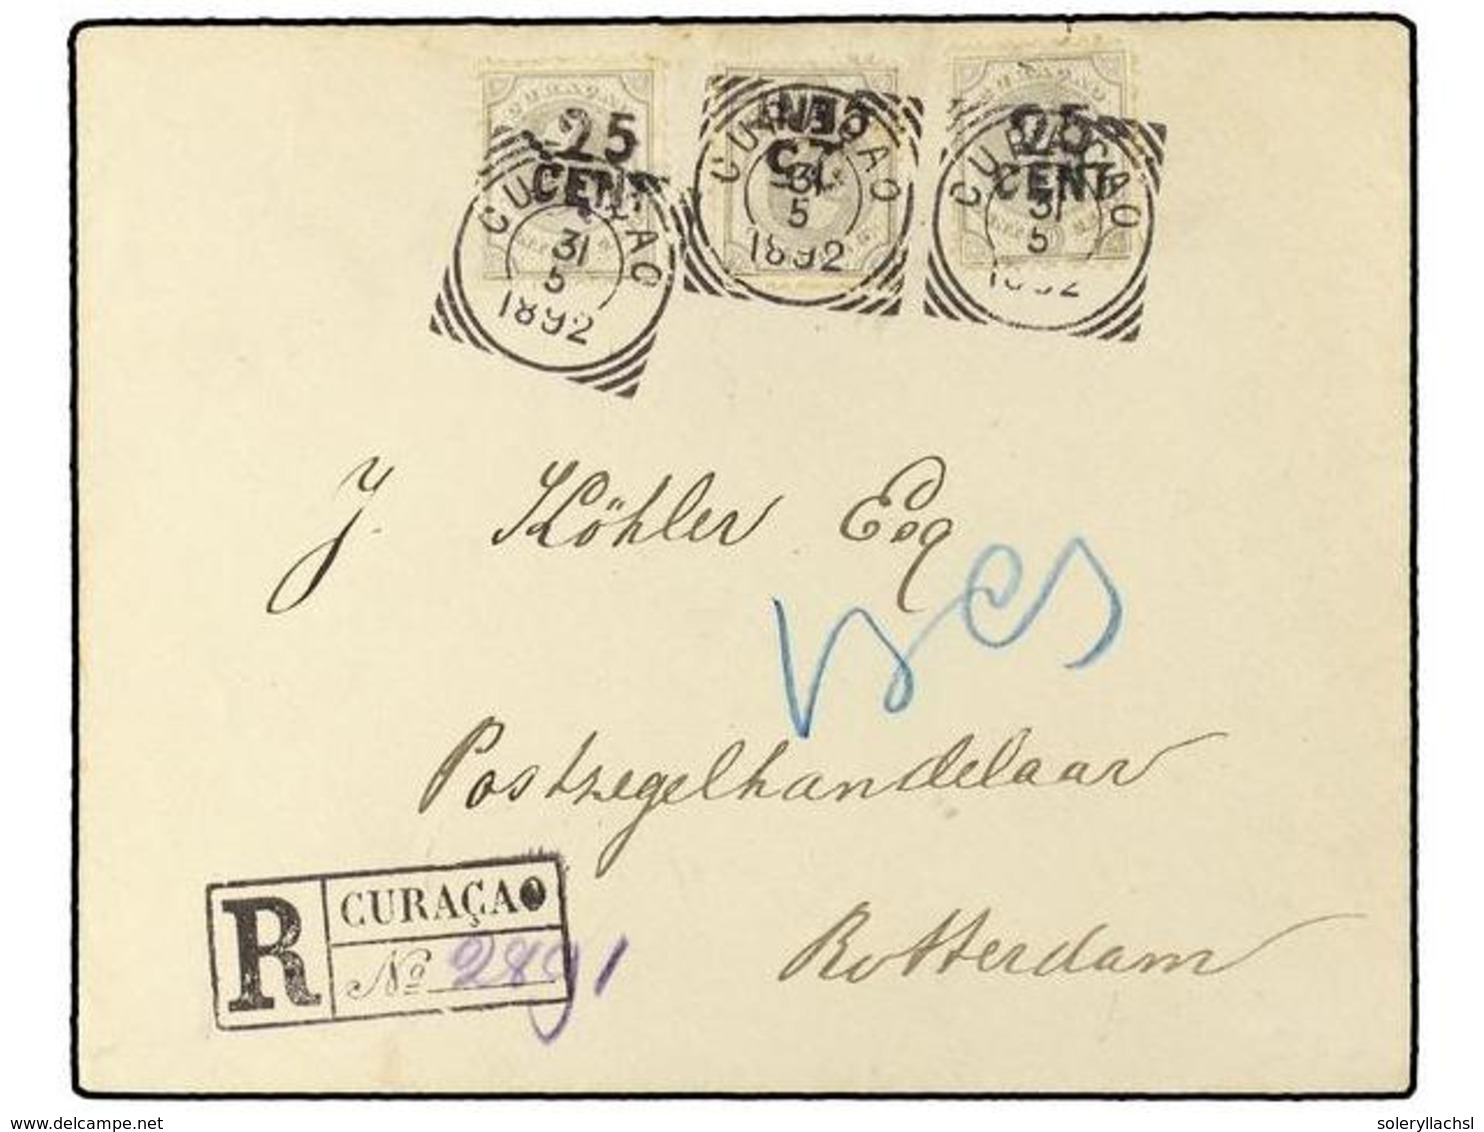 25
CENT
CURAÇAO
31
5
1892
25
CENT
CURAÇAO
31
5
1892
25
CENT
CURAÇAO
31
5
1892
J. Köhler Esq
Postzegelhandelaar
Rotterdam
R CURAÇAO
No 2891
delcampe.net
soleryllachsl